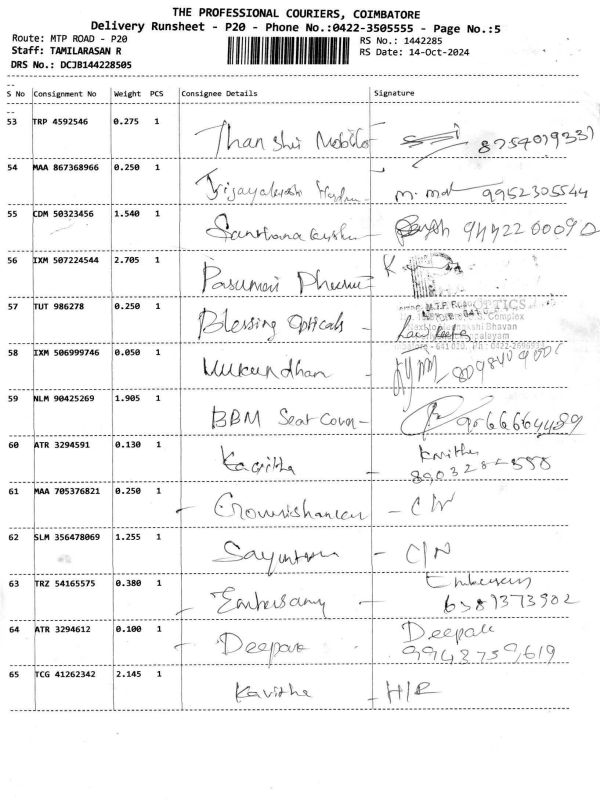 THE PROFESSIONAL COURIERS, COIMBATORE
Delivery Runsheet - P20 - Phone No.:0422-3505555 - Page No.:5
Route: MTP ROAD - P20 RS No.: 1442285
Staff: TAMILARASAN R RS Date: 14-Oct-2024
DRS No.: DCJB144228505
S No Consignment No Weight PCS Consignee Details Signature
53 TRP 4592546 0.275 1 Than Shri Mobiles 8754079331
54 MAA 867368966 0.250 1 9952305544
55 CDM 50323456 1.540 1 9442260090
56 IXM 507224544 2.705 1 K
57 TUT 986278 0.250 1 Blessing Opticals - OPTICS
Complex
Bhavan
58 IXM 506999746 0.050 1 Mukundhan
59 NLM 90425269 1.905 1 BBM Seat Cover - 9566664489
60 ATR 3294591 0.130 1 Kavitha -
61 MAA 705376821 0.250 1 - Gowrishankar - C/N
62 SLM 356478069 1.255 1 - C/N
63 TRZ 54165575 0.380 1 - -
6381373902
64 ATR 3294612 0.100 1 - Deepa -
9943759619
65 TCG 41262342 2.145 1 Kavitha - H/R